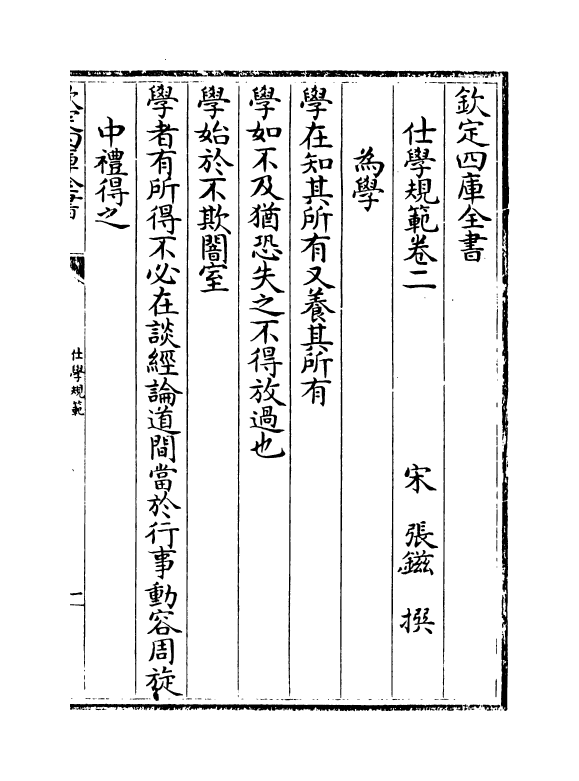 欽定四庫全書
仕學規範卷二
宋 張鎡 撰
為學
學在知其所有又養其所有
學如不及猶恐失之不得放過也
學始於不欺闇室
學者有所得不必在談經論道間當於行事動容周旋
中禮得之
仕學規範